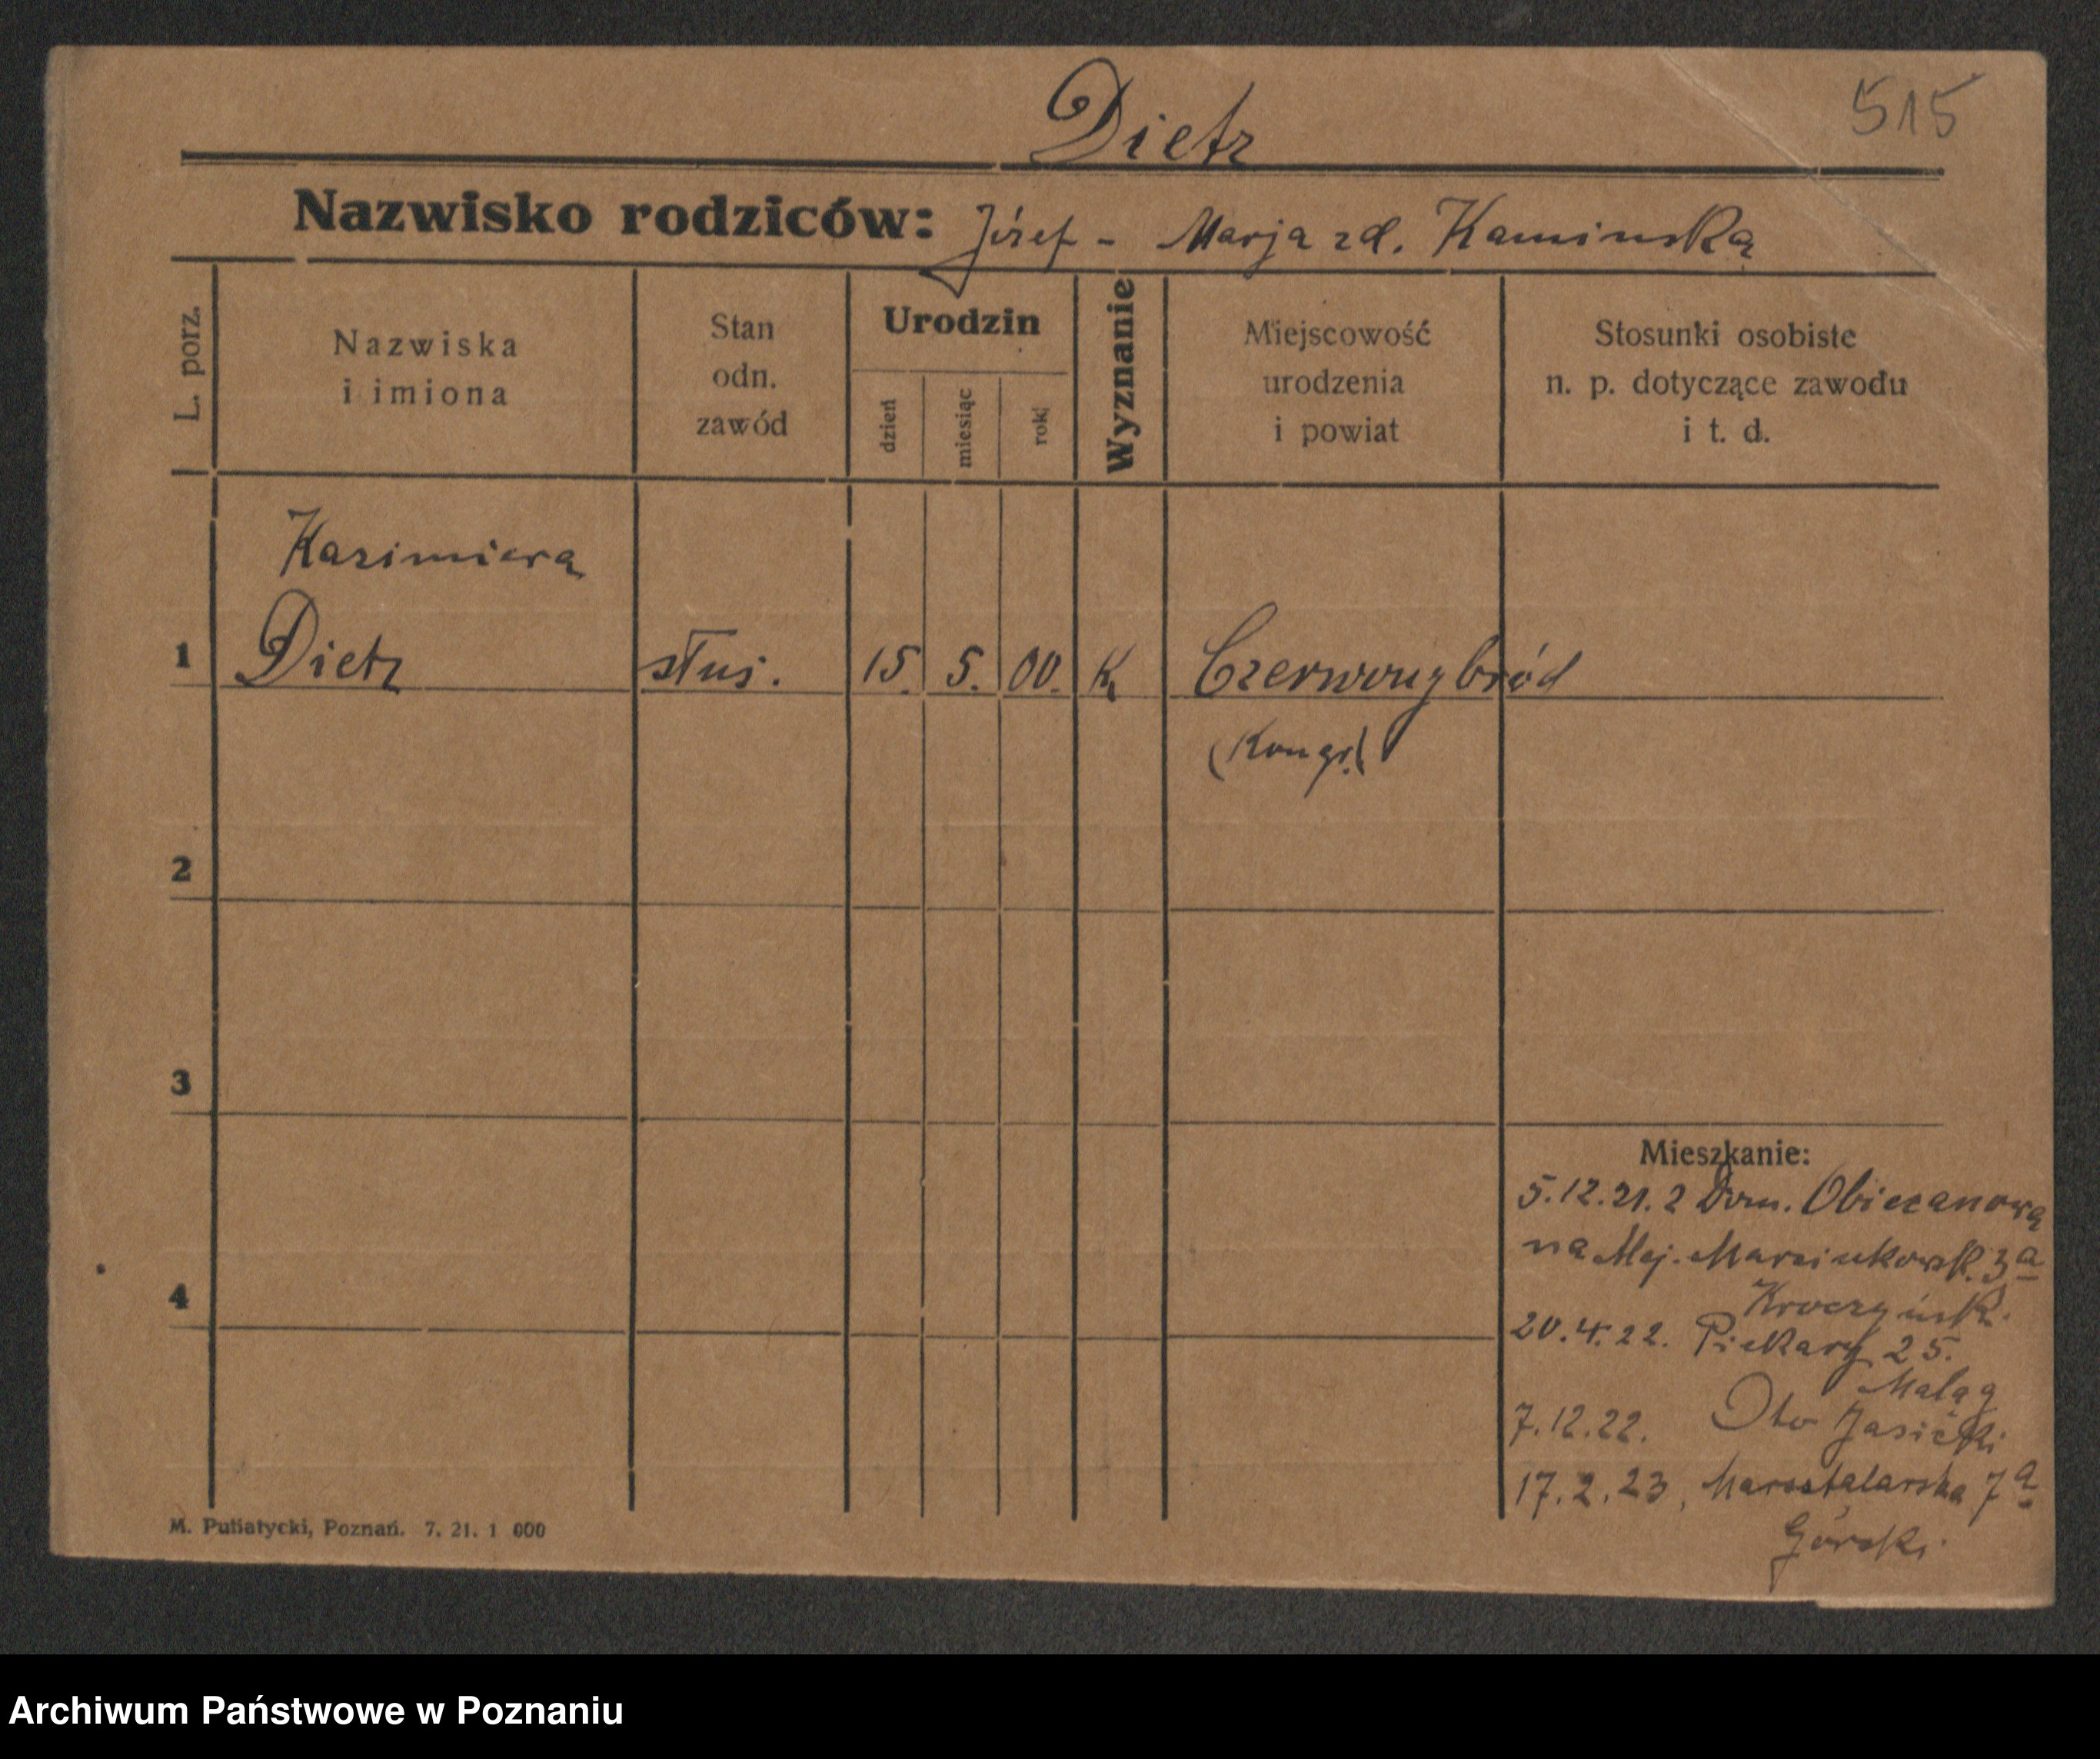 Dietz
515
Nazwisko rodziców: Józef - Marja zd. Kaminska
L. porz.
Nazwiska
i imiona
Stan
odn.
zawód
Urodzin
dzień
miesiąc
rok
Wyznanie
Miejscowość
urodzenia
i powiat
Stosunki osobiste
n. p. dotyczące zawodu
i t. d.
Kazimiera
1 Dietz służ. 15. 5. 00. K. Czerwonybród
(Kongr.)
2
3
Mieszkanie:
5.12.21. z Dom. Obiezanowa
na Alej. Marcinkowsk. 3a
4
Kroczyńsk.
20.4.22. Piekary 25.
7.12.22.
17.2.23, Marsztalarska 7a
Górski.
M. Putiatycki, Poznań. 7. 21. 1 000
Archiwum Państwowe w Poznaniu